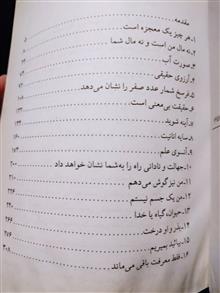 مقدمه
۱.هر چیز یک معجزه است
۲.نه مال من است و نه مال شما
۳.صورت آب
۴.آرزوی حقیقی
۵.فرسخ شمار عدد صفر را نشان می‌دهد.
۶.حقیقت بی‌معنی است.
۷.آینه شوید
۸.سایه انانیت
۹.آنسوی علم ۱۷۳
۱۰.جهالت و نادانی راه را به‌شما نشان خواهد داد ۲۰۰
۱۱.من نیز گوش می‌دهم
۱۲.من یک جسم نیستم ۲۳۶
۱۳.حیوان، گیاه یا خدا
۱۴.بذر و او درخت. ۲۶۶
۱۵.بیائید بمیریم.
۱۶.فقط معرفت باقی می‌ماند ۳۰۸